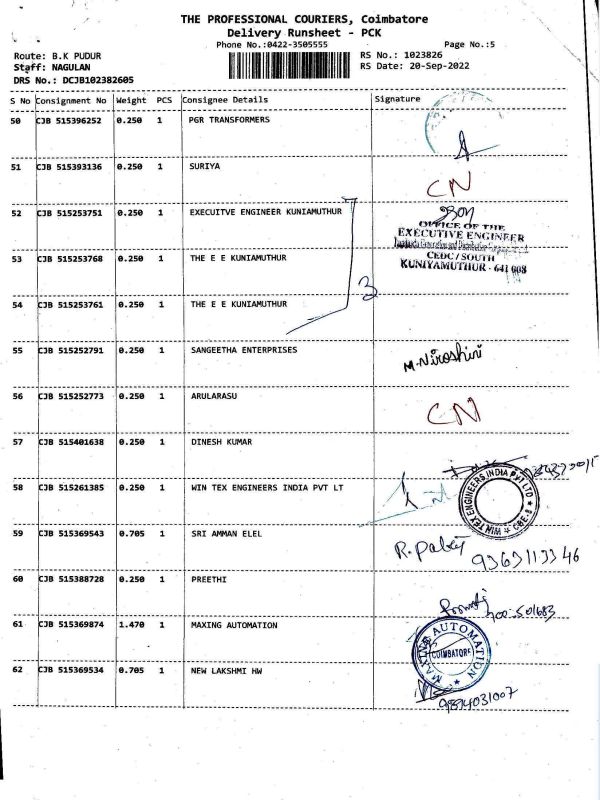 THE PROFESSIONAL COURIERS, Coimbatore
Delivery Runsheet - PCK
Phone No.:0422-3505555 Page No.:5
Route: B.K PUDUR RS No.: 1023826
Staff: NAGULAN RS Date: 20-Sep-2022
DRS No.: DCJB102382605
S No Consignment No Weight PCS Consignee Details Signature
50 CJB 515396252 0.250 1 PGR TRANSFORMERS
51 CJB 515393136 0.250 1 SURIYA
CN
52 CJB 515253751 0.250 1 EXECUITVE ENGINEER KUNIAMUTHUR
OFFICE OF THE
EXECUTIVE ENGINEER
53 CJB 515253768 0.250 1 THE E E KUNIAMUTHUR
CEDC/SOUTH
KUNIYAMUTHUR - 641 008
3
54 CJB 515253761 0.250 1 THE E E KUNIAMUTHUR
55 CJB 515252791 0.250 1 SANGEETHA ENTERPRISES
M.Niroshini
56 CJB 515252773 0.250 1 ARULARASU
CN
57 CJB 515401638 0.250 1 DINESH KUMAR
58 CJB 515261385 0.250 1 WIN TEX ENGINEERS INDIA PVT LT
WIN TEX ENGINEERS INDIA PVT LTD
59 CJB 515369543 0.705 1 SRI AMMAN ELEL
9363113346
60 CJB 515388728 0.250 1 PREETHI
61 CJB 515369874 1.470 1 MAXING AUTOMATION
MAXING AUTOMATION
COIMBATORE
62 CJB 515369534 0.705 1 NEW LAKSHMI HW